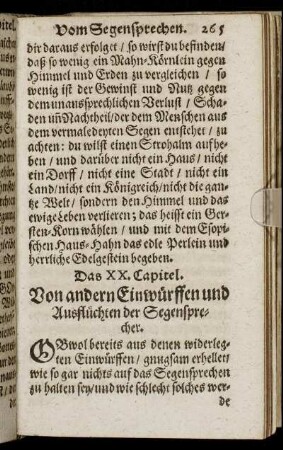 Vom Segensprechen. 265
dir daraus erfolget / so wirst du befinden /
daß so wenig ein Mahn-Körnlein gegen
Himmel und Erden zu vergleichen / so
wenig ist der Gewinst und Nutz gegen
dem unaussprechlichen Verlust / Scha-
den uñ Nachtheil / der dem Menschen aus
dem vermaledeyten Segen entstehet / zu
achten: du wilst einen Strohalm aufhe-
ben / und darüber nicht ein Haus / nicht
ein Dorff / nicht eine Stadt / nicht ein
Land / nicht ein Königreich / nicht die gan-
tze Welt / sondern den Himmel und das
ewige Leben verlieren; das heisst ein Ger-
sten-Korn wählen / und mit dem Esopi-
schen Haus-Hahn das edle Perlein und
herrliche Edelgestein begeben.
Das XX. Capitel.
Von andern Einwürffen und
Ausflüchten der Segenspre-
cher.
OBwol bereits aus denen widerleg-
ten Einwürffen / gnugsam erhellet /
wie so gar nichts auf das Segensprechen
zu halten sey / und wie schlecht solches wer-
de